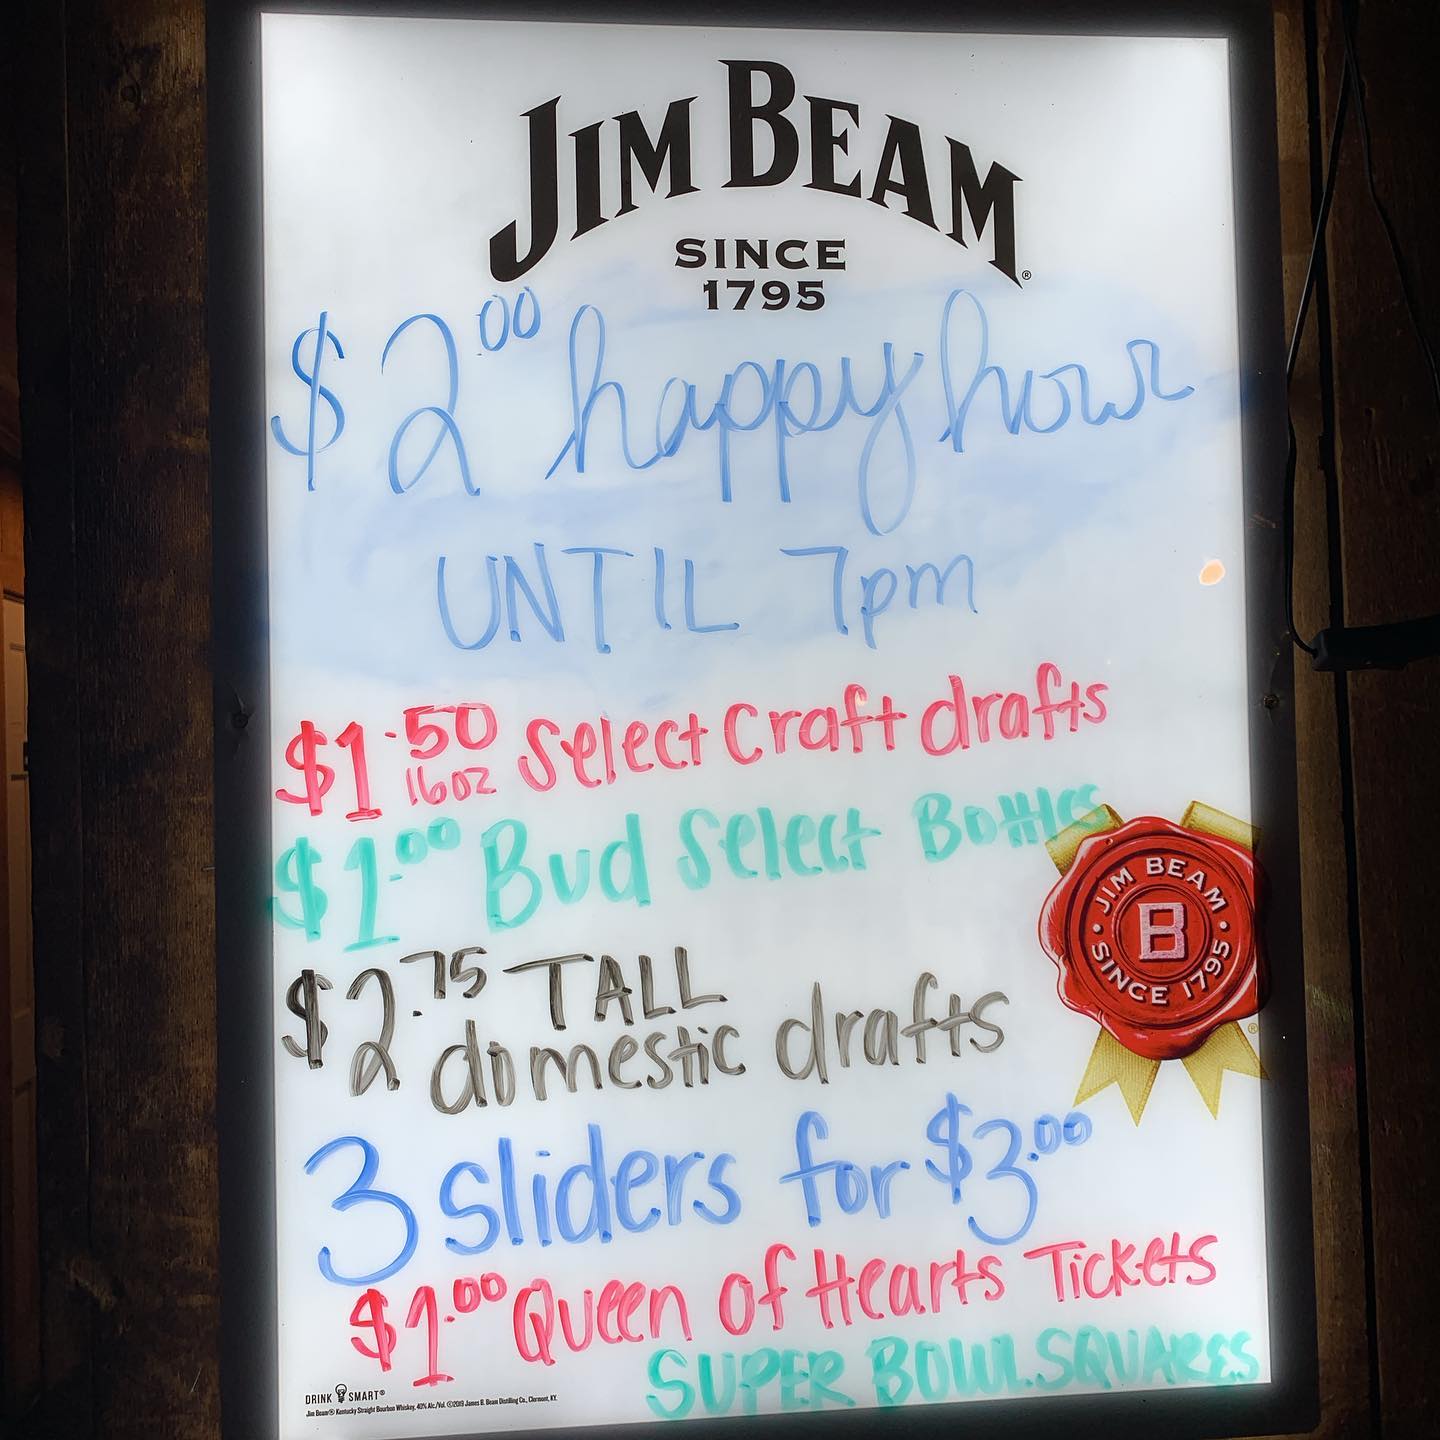 JIM BEAM®
SINCE
1795
$2.00 happy hour
UNTIL 7pm
$1.50 Select Craft drafts
16oz
$1.00 Bud Select Bottles
$2.75 TALL
domestic drafts
JIM BEAM
B
SINCE 1795
®
3 sliders for $3.00
$1.00 Queen of Hearts Tickets
SUPER BOWL SQUARES
DRINK SMART®
Jim Beam® Kentucky Straight Bourbon Whiskey, 40% Alc./Vol. ©2019 James B. Beam Distilling Co., Clermont, KY.